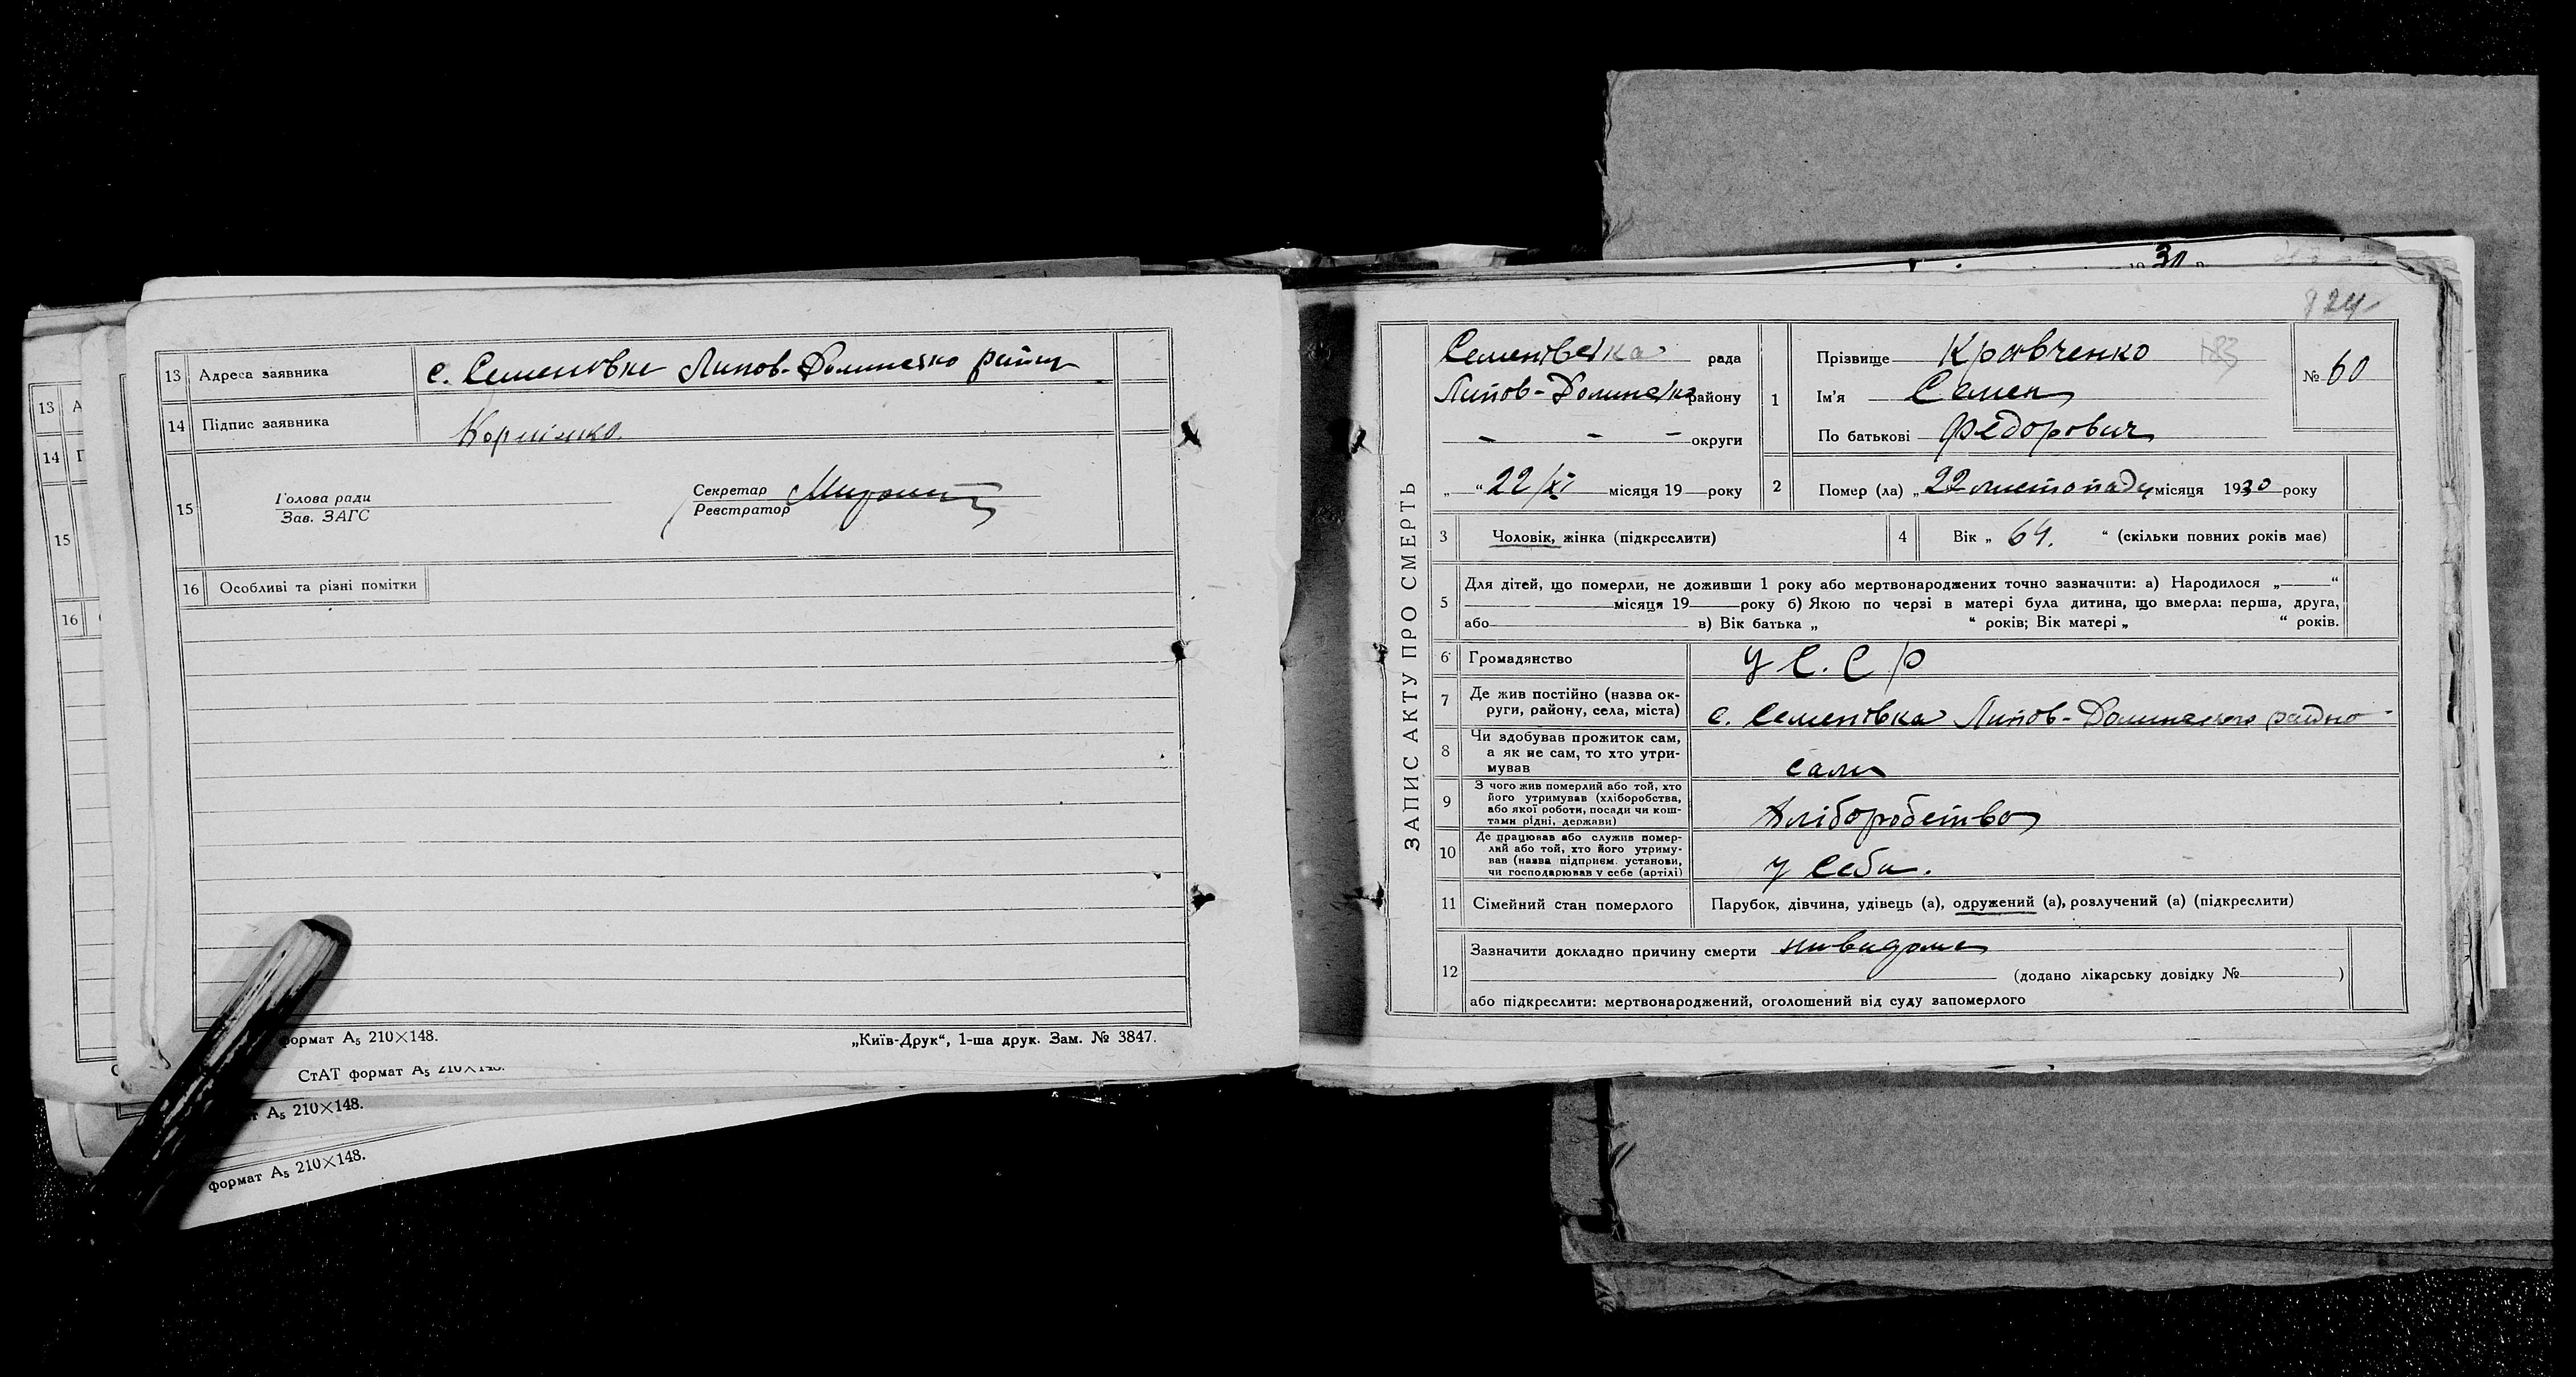 13 Адреса заявника с. Семеновка Липов-Долинсько район
14 Підпис заявника
15 Голова ради
Зав. ЗАГС
Секретар
Реєстратор
16 Особливі та різні помітки
формат А5 210×148.
„Київ-Друк“, 1-ша друк. Зам. № 3847.
СтАТ формат А5 210×148.
А5 210×148.
формат А5 210×148.
13 А
14 П
15
16
30
824
ЗАПИС АКТУ ПРО СМЕРТЬ
Семенівська рада
Липов-Долинська району
— — — округи
„ “ 22/XI місяця 19— року
1 Прізвище Кравченко 183
Ім'я Семен
По батькові Федорович
№ 60
2 Помер (ла) „ 22 листопаду місяця 1930 року
3 Чоловік, жінка (підкреслити)
4 Вік „ 64. “ (скільки повних років має)
5 Для дітей, що померли, не доживши 1 року або мертвонароджених точно зазначити: а) Народилося „—“
місяця 19— року б) Якою по черзі в матері була дитина, що вмерла: перша, друга,
або — в) Вік батька „ “ років; Вік матері „ “ років.
6 Громадянство У С. С Р
7 Де жив постійно (назва ок-
руги, району, села, міста) с. Семенівка Липов-Долинского район
8 Чи здобував прожиток сам,
а як не сам, то хто утри-
мував сам
9 З чого жив померлий або той, хто
його утримував (хліборобства,
або якої роботи, посади чи кош-
тами рідні, держави) Хліборобство
10 Де працював або служив помер-
лий або той, хто його утриму-
вав (назва підприєм. установи,
чи господарював у себе (артілі) у себи.
11 Сімейний стан померлого Парубок, дівчина, удівець (а), одружений (а), розлучений (а) (підкреслити)
12 Зазначити докладно причину смерти нивидома
(додано лікарську довідку №— )
або підкреслити: мертвонароджений, оголошений від суду запомерлого